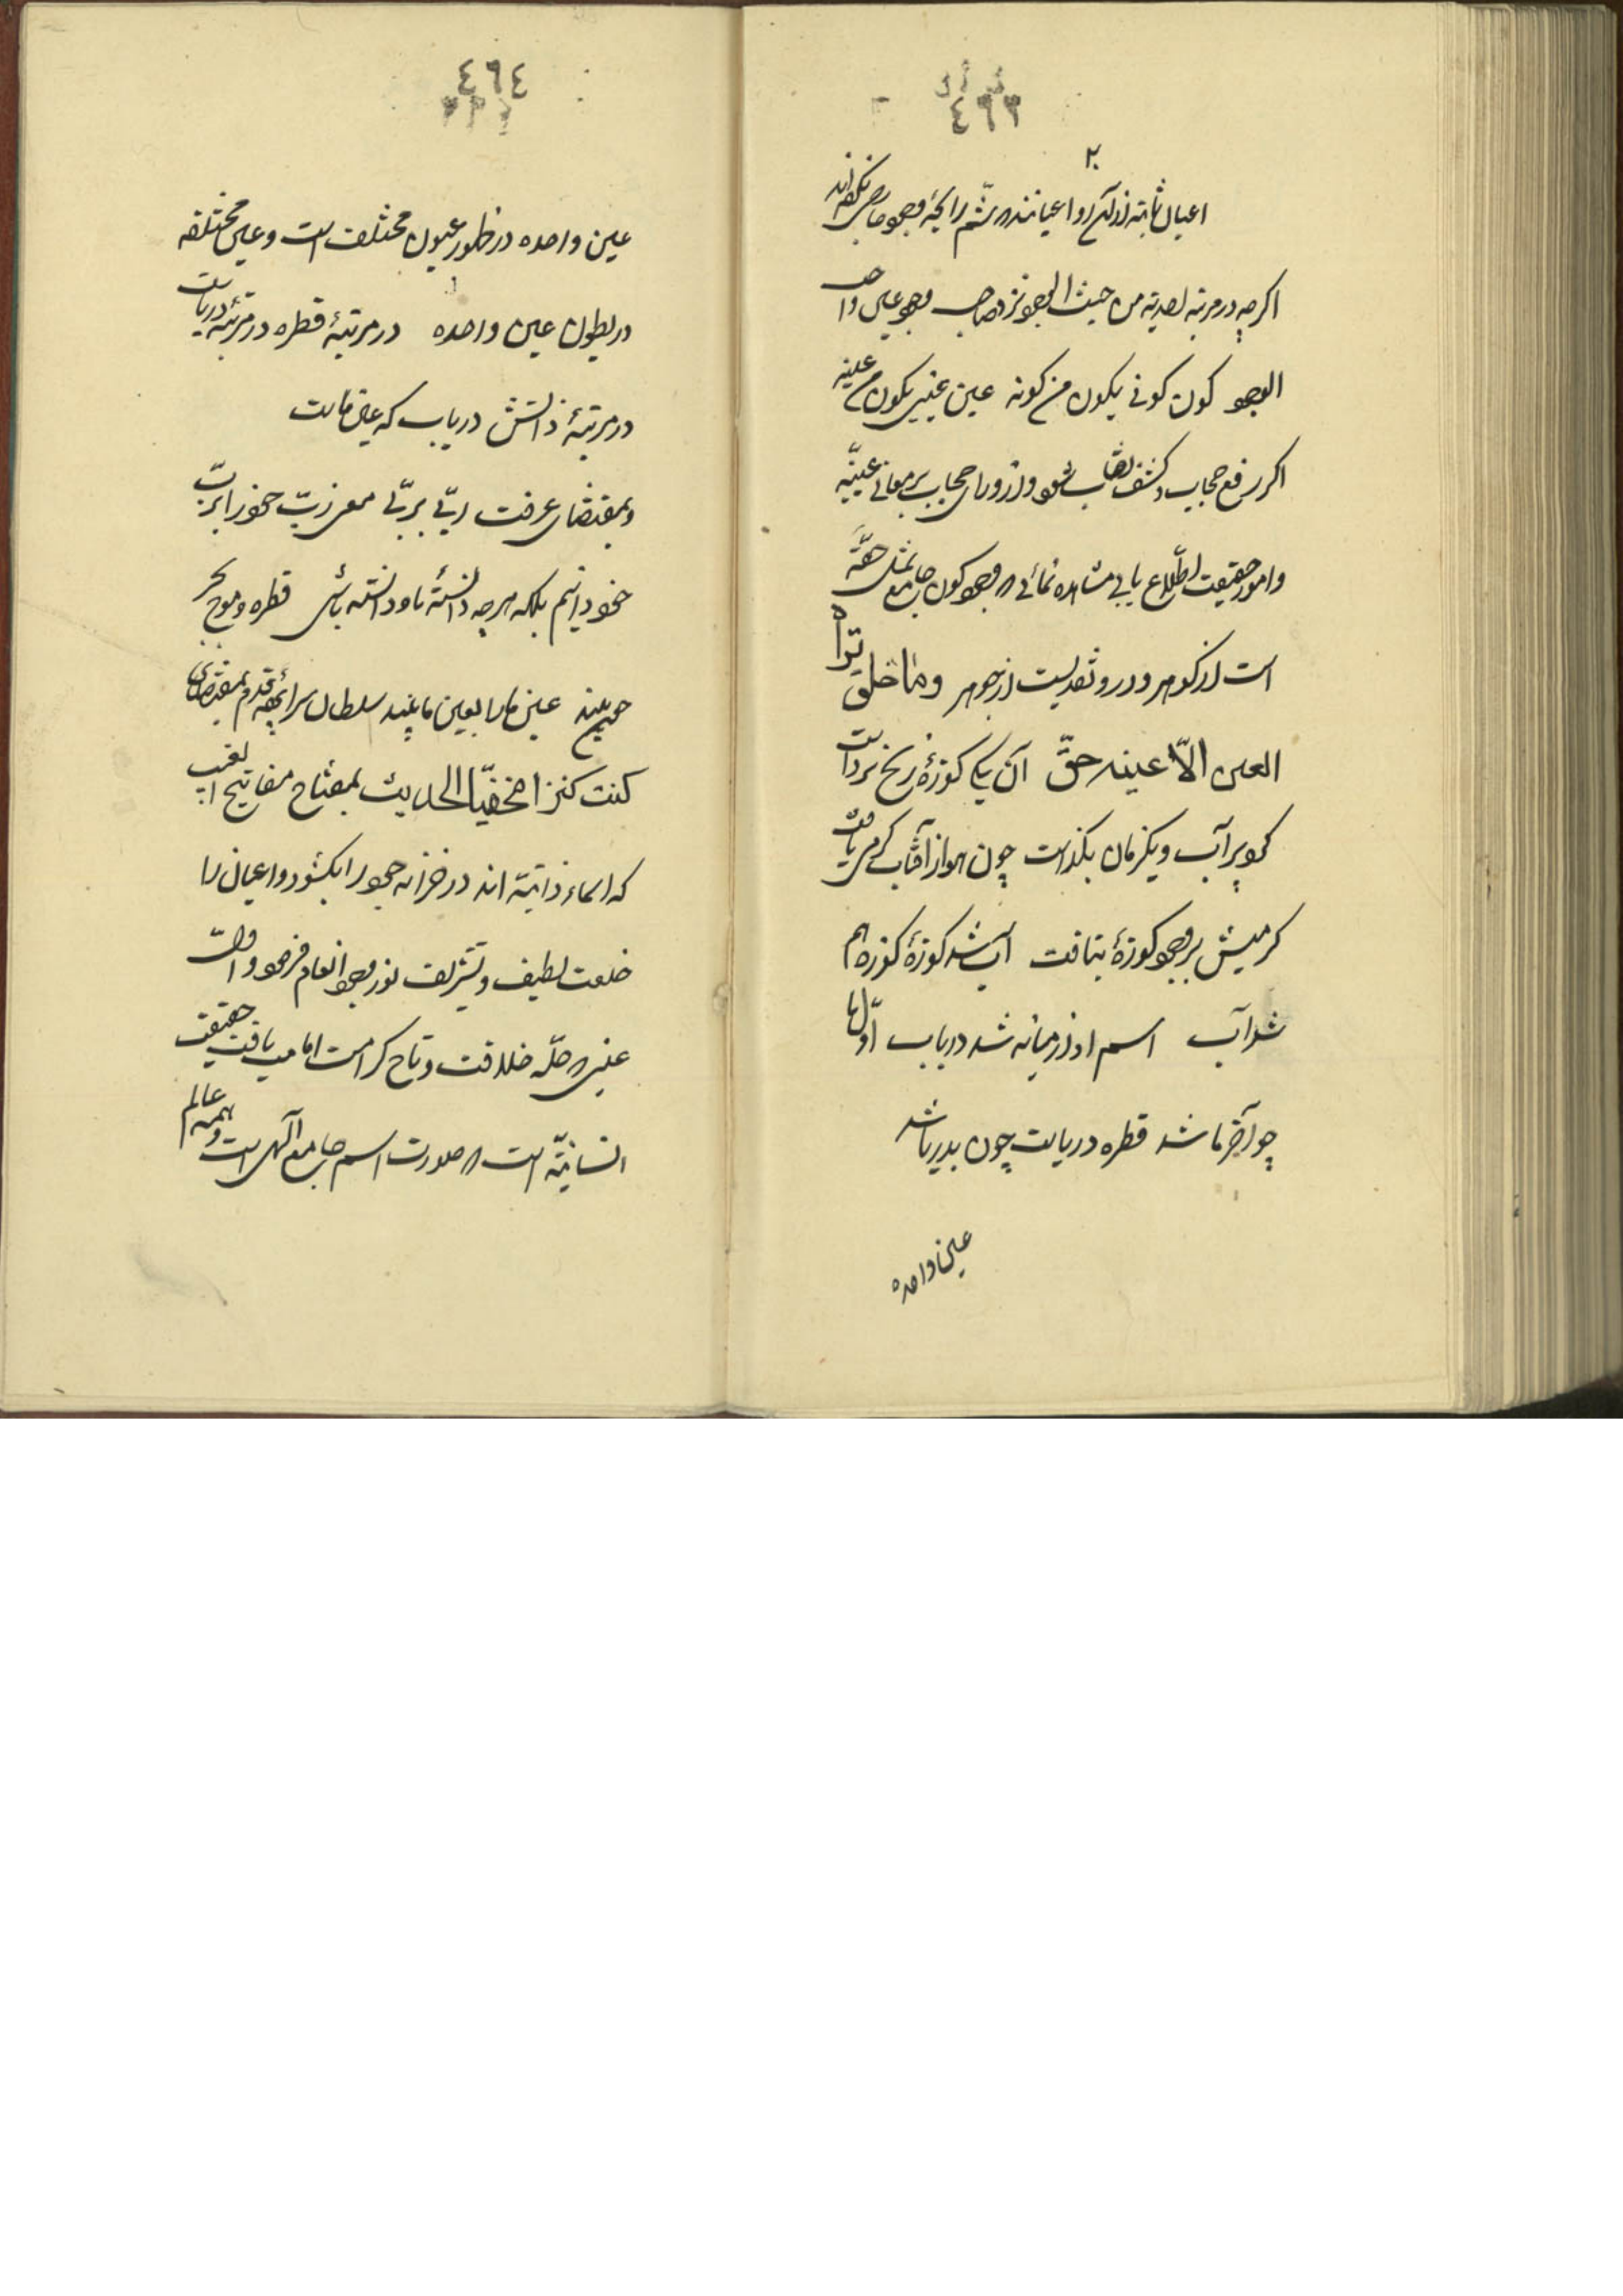 ٤٦٣
اعیان ثابته از آن رو اعیانند که شم رایحهٔ وجود خاص نکرده‌اند
اگرچه در مرتبه احدیة من حیث الوجود نزد صاحب وجود عین واحد
الوجود کون کونی یکون من کونه عین عینی یکون من عینه
اگر رفع حجاب و کشف نقاب شود و از ورای حجاب بر معانی عینیّه
و امور حقیقت اطّلاع یابی مشاهده نمائی که وجود کون جامع
است از گوهر و در و از جوهر وما خلق تراه
العین الّا عینه حقّ آن یکی کوزهٔ ز یخ برداشت
کرد پر آب و یکزمان بگذاشت چون هوا ز آفتاب گرمی یافت
گرمیش بر وجود کوزهٔ بتافت آب شد کوزهٔ کوزه هم
شد آب اسم او از میانه شد دریاب اوّل ما
چو آخر ما شد قطره دریاست چون بدریا شد
عین واحده
٤٦٤
عین واحده در ظهور عیون مختلف است و عین مختلفه
در بطون عین واحده در مرتبهٔ قطره در مرتبهٔ دریاست
در مرتبهٔ ذاتش دریاب که عین ماست
و بمقتضای عرفت ربّی بربّی معرفت ربّ خود را بربّ
خود دانیم بلکه هرچه دانستهٔ باو دانسته باشی قطره و موج و بحر
جو بیند عین ما را بعین ما بیند سلطان سراپردهٔ قدم بمقتضای
کنت کنزا مخفیّا الحدیث بمفتاح مفاتیح الغیب
که اسماء ذاتیّه اند در خزانه جود را بگشود و اعیان را
خلعت لطیف و تشریف نور وجود انعام فرمود و اوّل
عینی که حلّه خلافت و تاج کرامت امامت یافت حقیقت
انسانیّه است که صورت اسم جامع الهی است و همه عالم